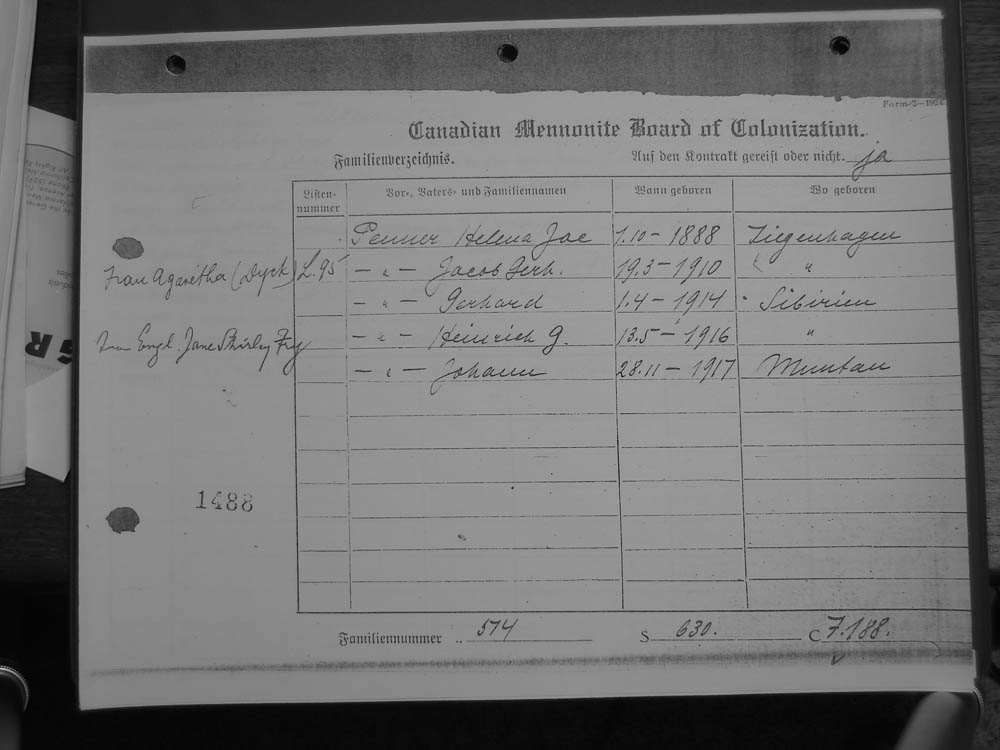 Form 2—1924
Canadian Mennonite Board of Colonization.
Familienverzeichnis. Auf den Kontrakt gereist oder nicht. ja
Listen-nummer Vor-, Vaters- und Familiennamen Wann geboren Wo geboren
Penner Helena Jac 7.10 - 1888 Ziegenhagen
Frau Aganetha (Dyck) L.95 - " - Jacob Gerh. 19.3 - 1910 "
- " - Gerhard 1.4 - 1914 Sibirien
Engl. Jane Shirley Fry - " - Heinrich G. 13.5 - 1916 "
- " - Johann 28.11 - 1917 Muntau
1488
Familiennummer .. 574 S 630. C 7.188.
GR